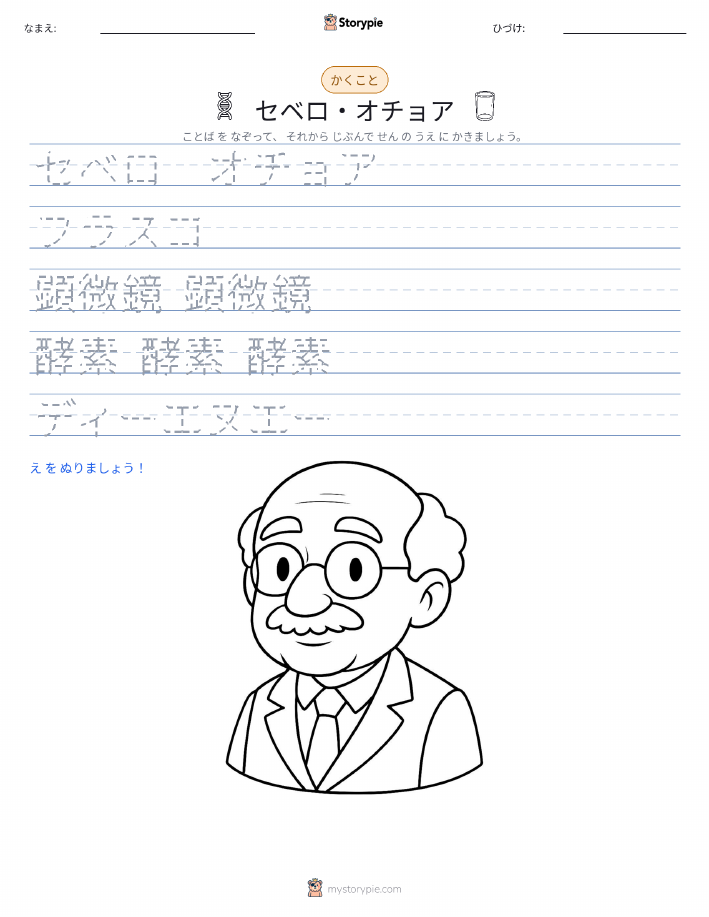 なまえ:
Storypie
ひづけ:
かくこと
セベロ・オチョア
ことば を なぞって、 それから じぶんで せん の うえ に かきましょう。
セベロ オチョア
フラスコ
顕微鏡 顕微鏡
酵素 酵素 酵素
ディーエヌエー
え を ぬりましょう！
mystorypie.com